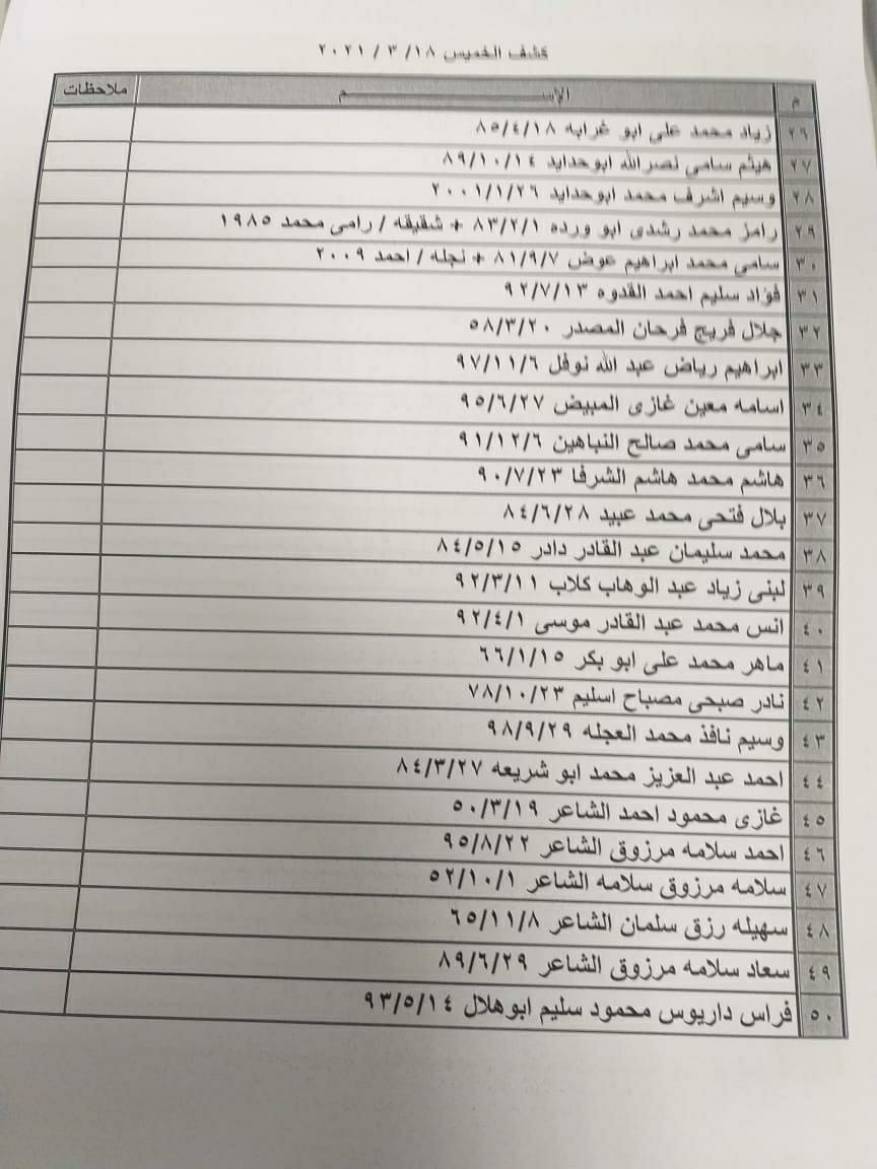 كشف الخميس ١٨/ ٣ / ٢٠٢١
م الإســــــــم ملاحظات
٢٦ زياد محمد على ابو غرابه ٨٥/٤/١٨
٢٧ هيثم سامى نصر الله ابوحدايد ٨٩/١٠/١٤
٢٨ وسيم اشرف محمد ابوحدايد ٢٠٠١/١/٢٦
٢٩ رامز محمد رشدى ابو ورده ٨٣/٢/١ + شقيقه / رامى محمد ١٩٨٥
٣٠ سامى محمد ابراهيم عوض ٨١/٩/٧ + نجله / احمد ٢٠٠٩
٣١ فؤاد سليم احمد القدوه ٩٢/٧/١٣
٣٢ جلال فريج فرحان المصدر ٥٨/٣/٢٠
٣٣ ابراهيم رياض عبد الله نوفل ٩٧/١١/٦
٣٤ اسامه معين غازى المبيض ٩٥/٦/٢٧
٣٥ سامى محمد صالح النباهين ٩١/١٢/٦
٣٦ هاشم محمد هاشم الشرفا ٩٠/٧/٢٣
٣٧ بلال فتحى محمد عبيد ٨٤/٦/٢٨
٣٨ محمد سليمان عبد القادر دادر ٨٤/٥/١٥
٣٩ لبنى زياد عبد الوهاب كلاب ٩٢/٣/١١
٤٠ انس محمد عبد القادر موسى ٩٢/٤/١
٤١ ماهر محمد على ابو بكر ٦٦/١/١٥
٤٢ نادر صبحى مصباح اسليم ٧٨/١٠/٢٣
٤٣ وسيم نافذ محمد العجله ٩٨/٩/٢٩
٤٤ احمد عبد العزيز محمد ابو شريعه ٨٤/٣/٢٧
٤٥ غازى محمود احمد الشاعر ٥٠/٣/١٩
٤٦ احمد سلامه مرزوق الشاعر ٩٥/٨/٢٢
٤٧ سلامه مرزوق سلامه الشاعر ٥٢/١٠/١
٤٨ سهيله رزق سلمان الشاعر ٦٥/١١/٨
٤٩ سعاد سلامه مرزوق الشاعر ٨٩/٦/٢٩
٥٠ فراس داريوس محمود سليم ابوهلال ٩٣/٥/١٤